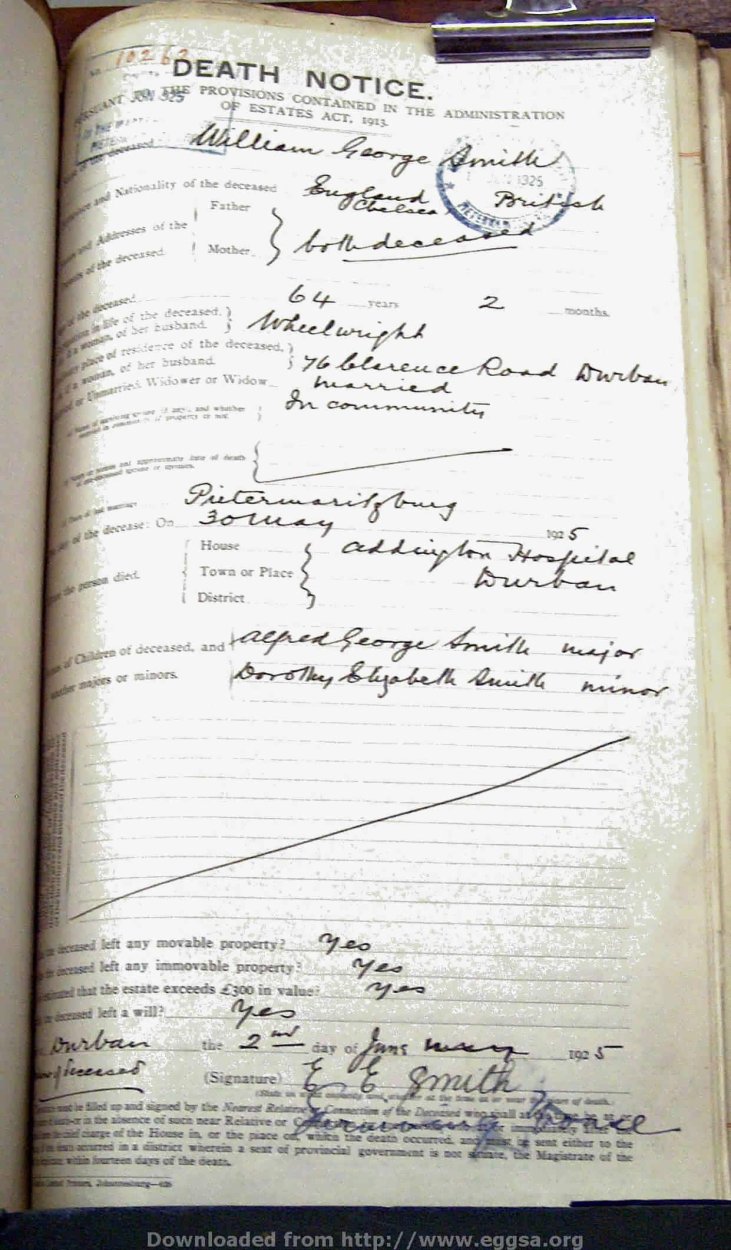 No. 10263
DEATH NOTICE.
PURSUANT TO THE PROVISIONS CONTAINED IN THE ADMINISTRATION
OF ESTATES ACT, 1913.
JUN 325
of the deceased William George Smith
1925
and Nationality of the deceased England British
Chelsea
Father
and Addresses of the
Mother both deceased
of the deceased
of the deceased 64 years 2 months.
in life of the deceased,
a woman, of her husband. Wheelwright
place of residence of the deceased,
a woman, of her husband. 76 Clarence Road Durban
or Unmarried, Widower or Widow married
In community
Pietermaritzburg
of the decease: On 30 May 1925
House Addington Hospital
the person died. Town or Place Durban
District
of Children of deceased, and Alfred George Smith major
majors or minors. Dorothy Elizabeth Smith minor
deceased left any movable property? Yes
deceased left any immovable property? Yes
that the estate exceeds £300 in value? Yes
deceased left a will? Yes
Durban the 2nd day of June May 1925
of deceased
(Signature) E E Smith
must be filled up and signed by the Nearest Relative or Connection of the Deceased who shall
in the absence of such near Relative or
charge of the House in, or the place on, which the death occurred, and must be sent either to the
occurred in a district wherein a seat of provincial government is not situate, the Magistrate of the
within fourteen days of the death.
Downloaded from http://www.eggsa.org